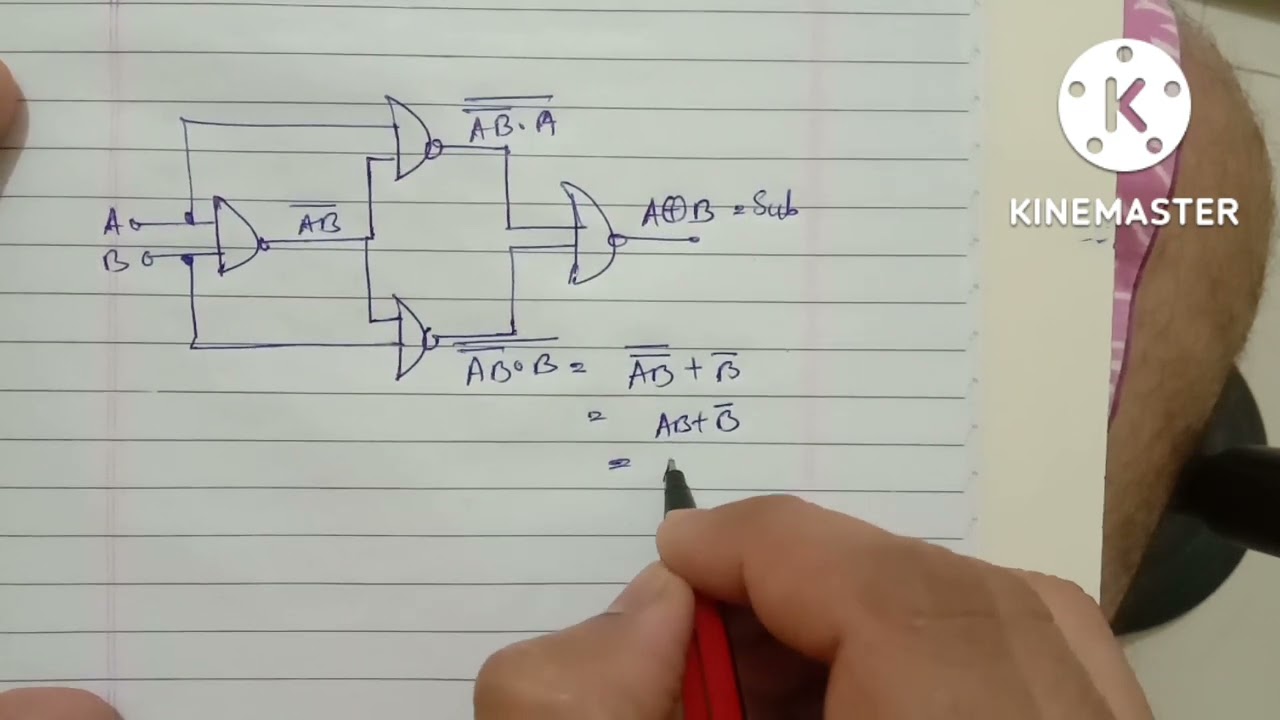 $\overline{\overline{AB} \cdot A}$
A $\overline{AB}$ A⊕B = Sub
B
$\overline{\overline{AB} \cdot B}$ = $\overline{\overline{AB}}$ + $\overline{B}$
= AB + $\overline{B}$
=
K
KINEMASTER